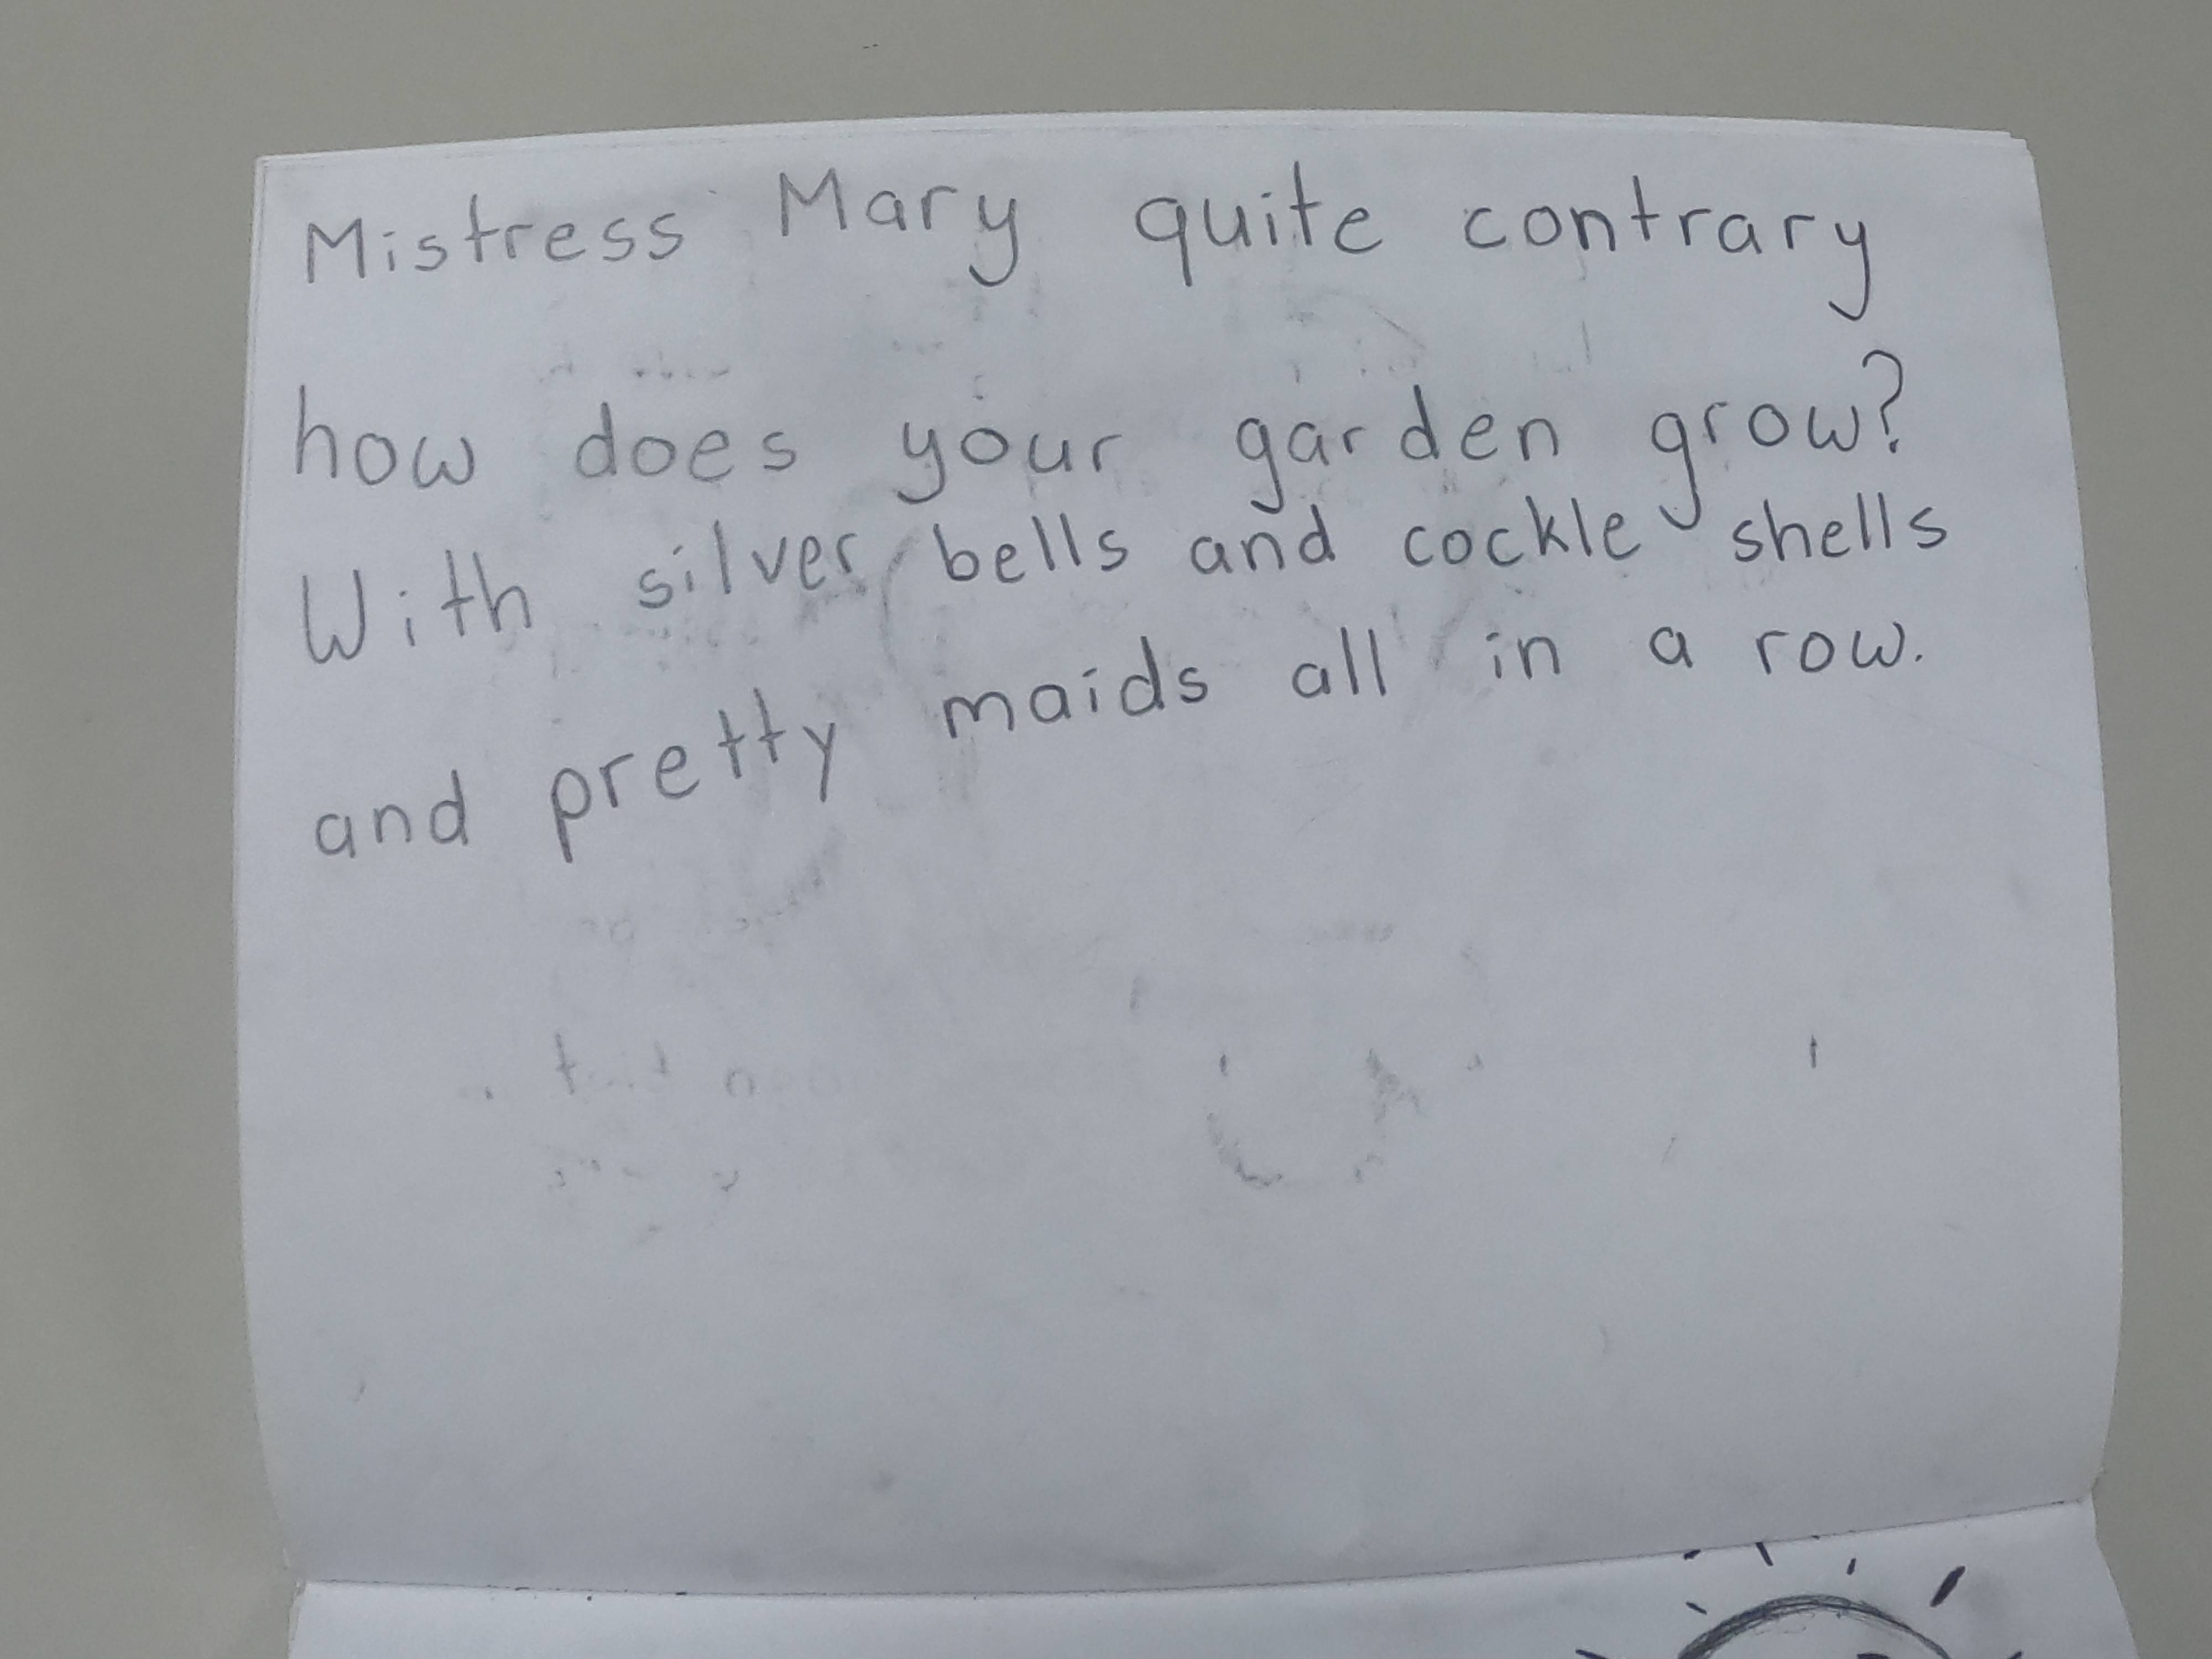 Mistress Mary quite contrary
how does your garden grow?
With silver bells and cockle shells
and pretty maids all in a row.